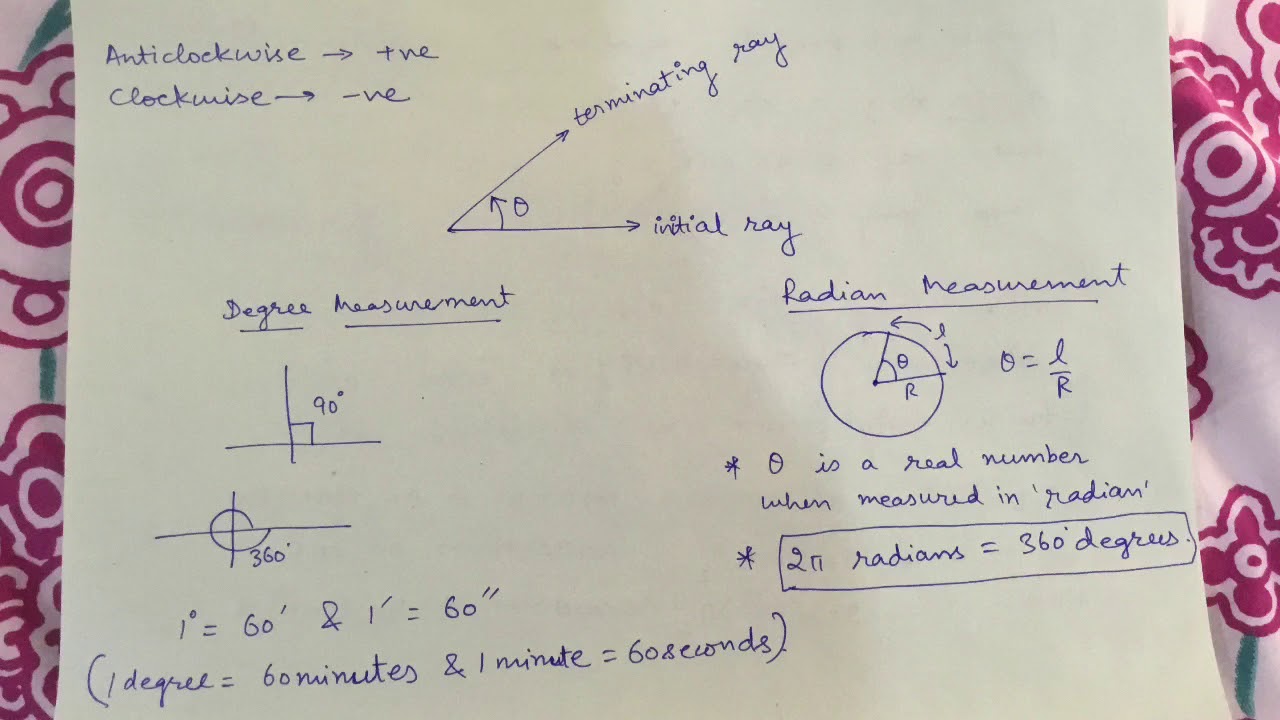 Anticlockwise → +ve
Clockwise → -ve
terminating ray
θ
initial ray
Degree Measurement
90°
360°
1° = 60′ & 1′ = 60″
(1 degree = 60 minutes & 1 minute = 60 seconds).
Radian Measurement
l
θ
R
θ = l/R
* θ is a real number
when measured in 'radian'
* 2π radians = 360° degrees.